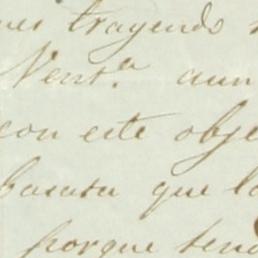 trayendo
Vent.ª aun
con este obje
que lo
porque tend